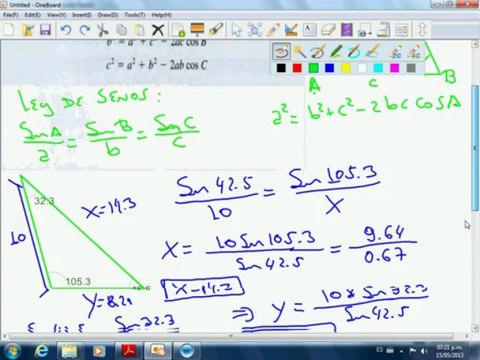 Untitled - OneBoard
File(F) Edit(E) View(V) Insert(I) Tools(T) Help(H)
b² = a² + c² − 2ac cos B
c² = a² + b² − 2ab cos C
A
c
B
Ley DE SENOS:
a² = b² + c² − 2bc cos A
Sen A / a = Sen B / b = Sen C / c
32.3
10
105.3
X=14.3
Y=8.21
Sen 42.5 / 10 = Sen 105.3 / X
X = 10 Sen 105.3 / Sen 42.5 = 9.64 / 0.67
X=14.3
⇒ y = 10 * Sen 32.3 / Sen 42.5
Sen 32.3
ES
07:21 p.m.
15/05/2013